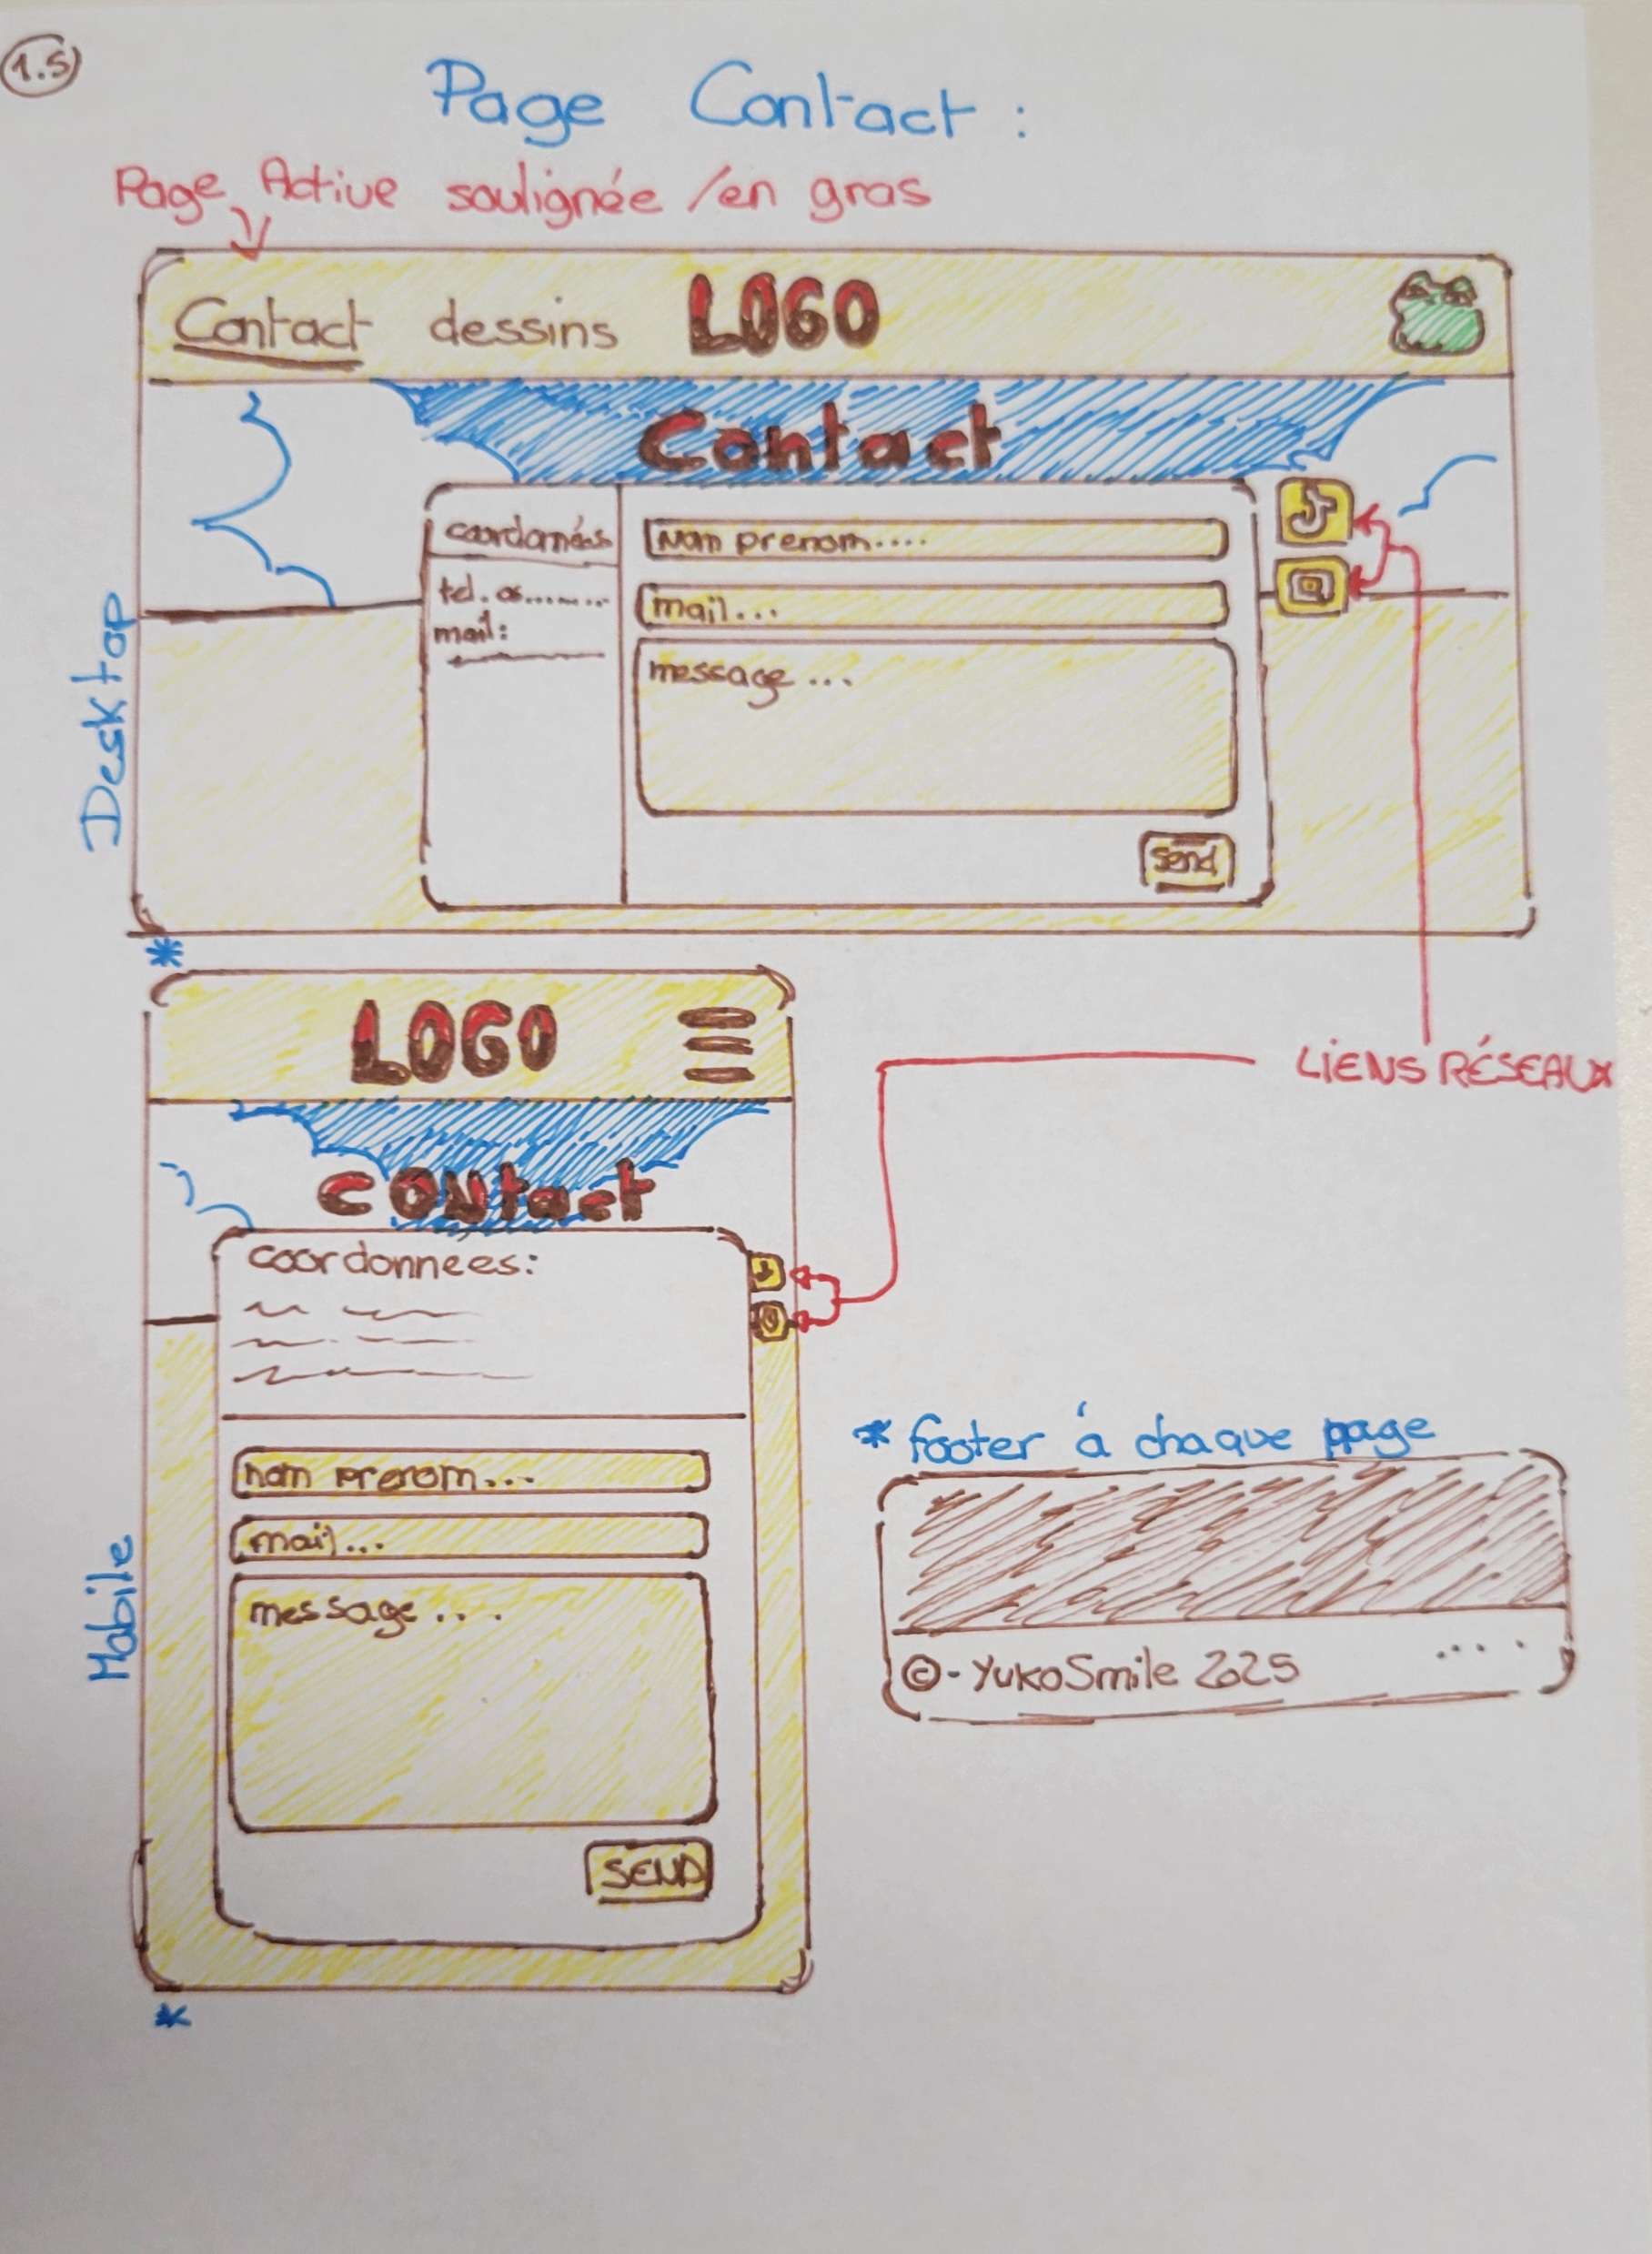 1.5
Page Contact :
Page Active soulignée / en gras
Contact dessins LOGO
Contact
coordonnées
tel. 06........
mail:
Nom prenom....
mail...
message ...
send
Desktop
*
LOGO
contact
coordonnees:
nom prenom...
mail...
message ...
SEND
Mobile
*
LIENS RÉSEAUX
* footer à chaque page
©-YukoSmile 2025 ....